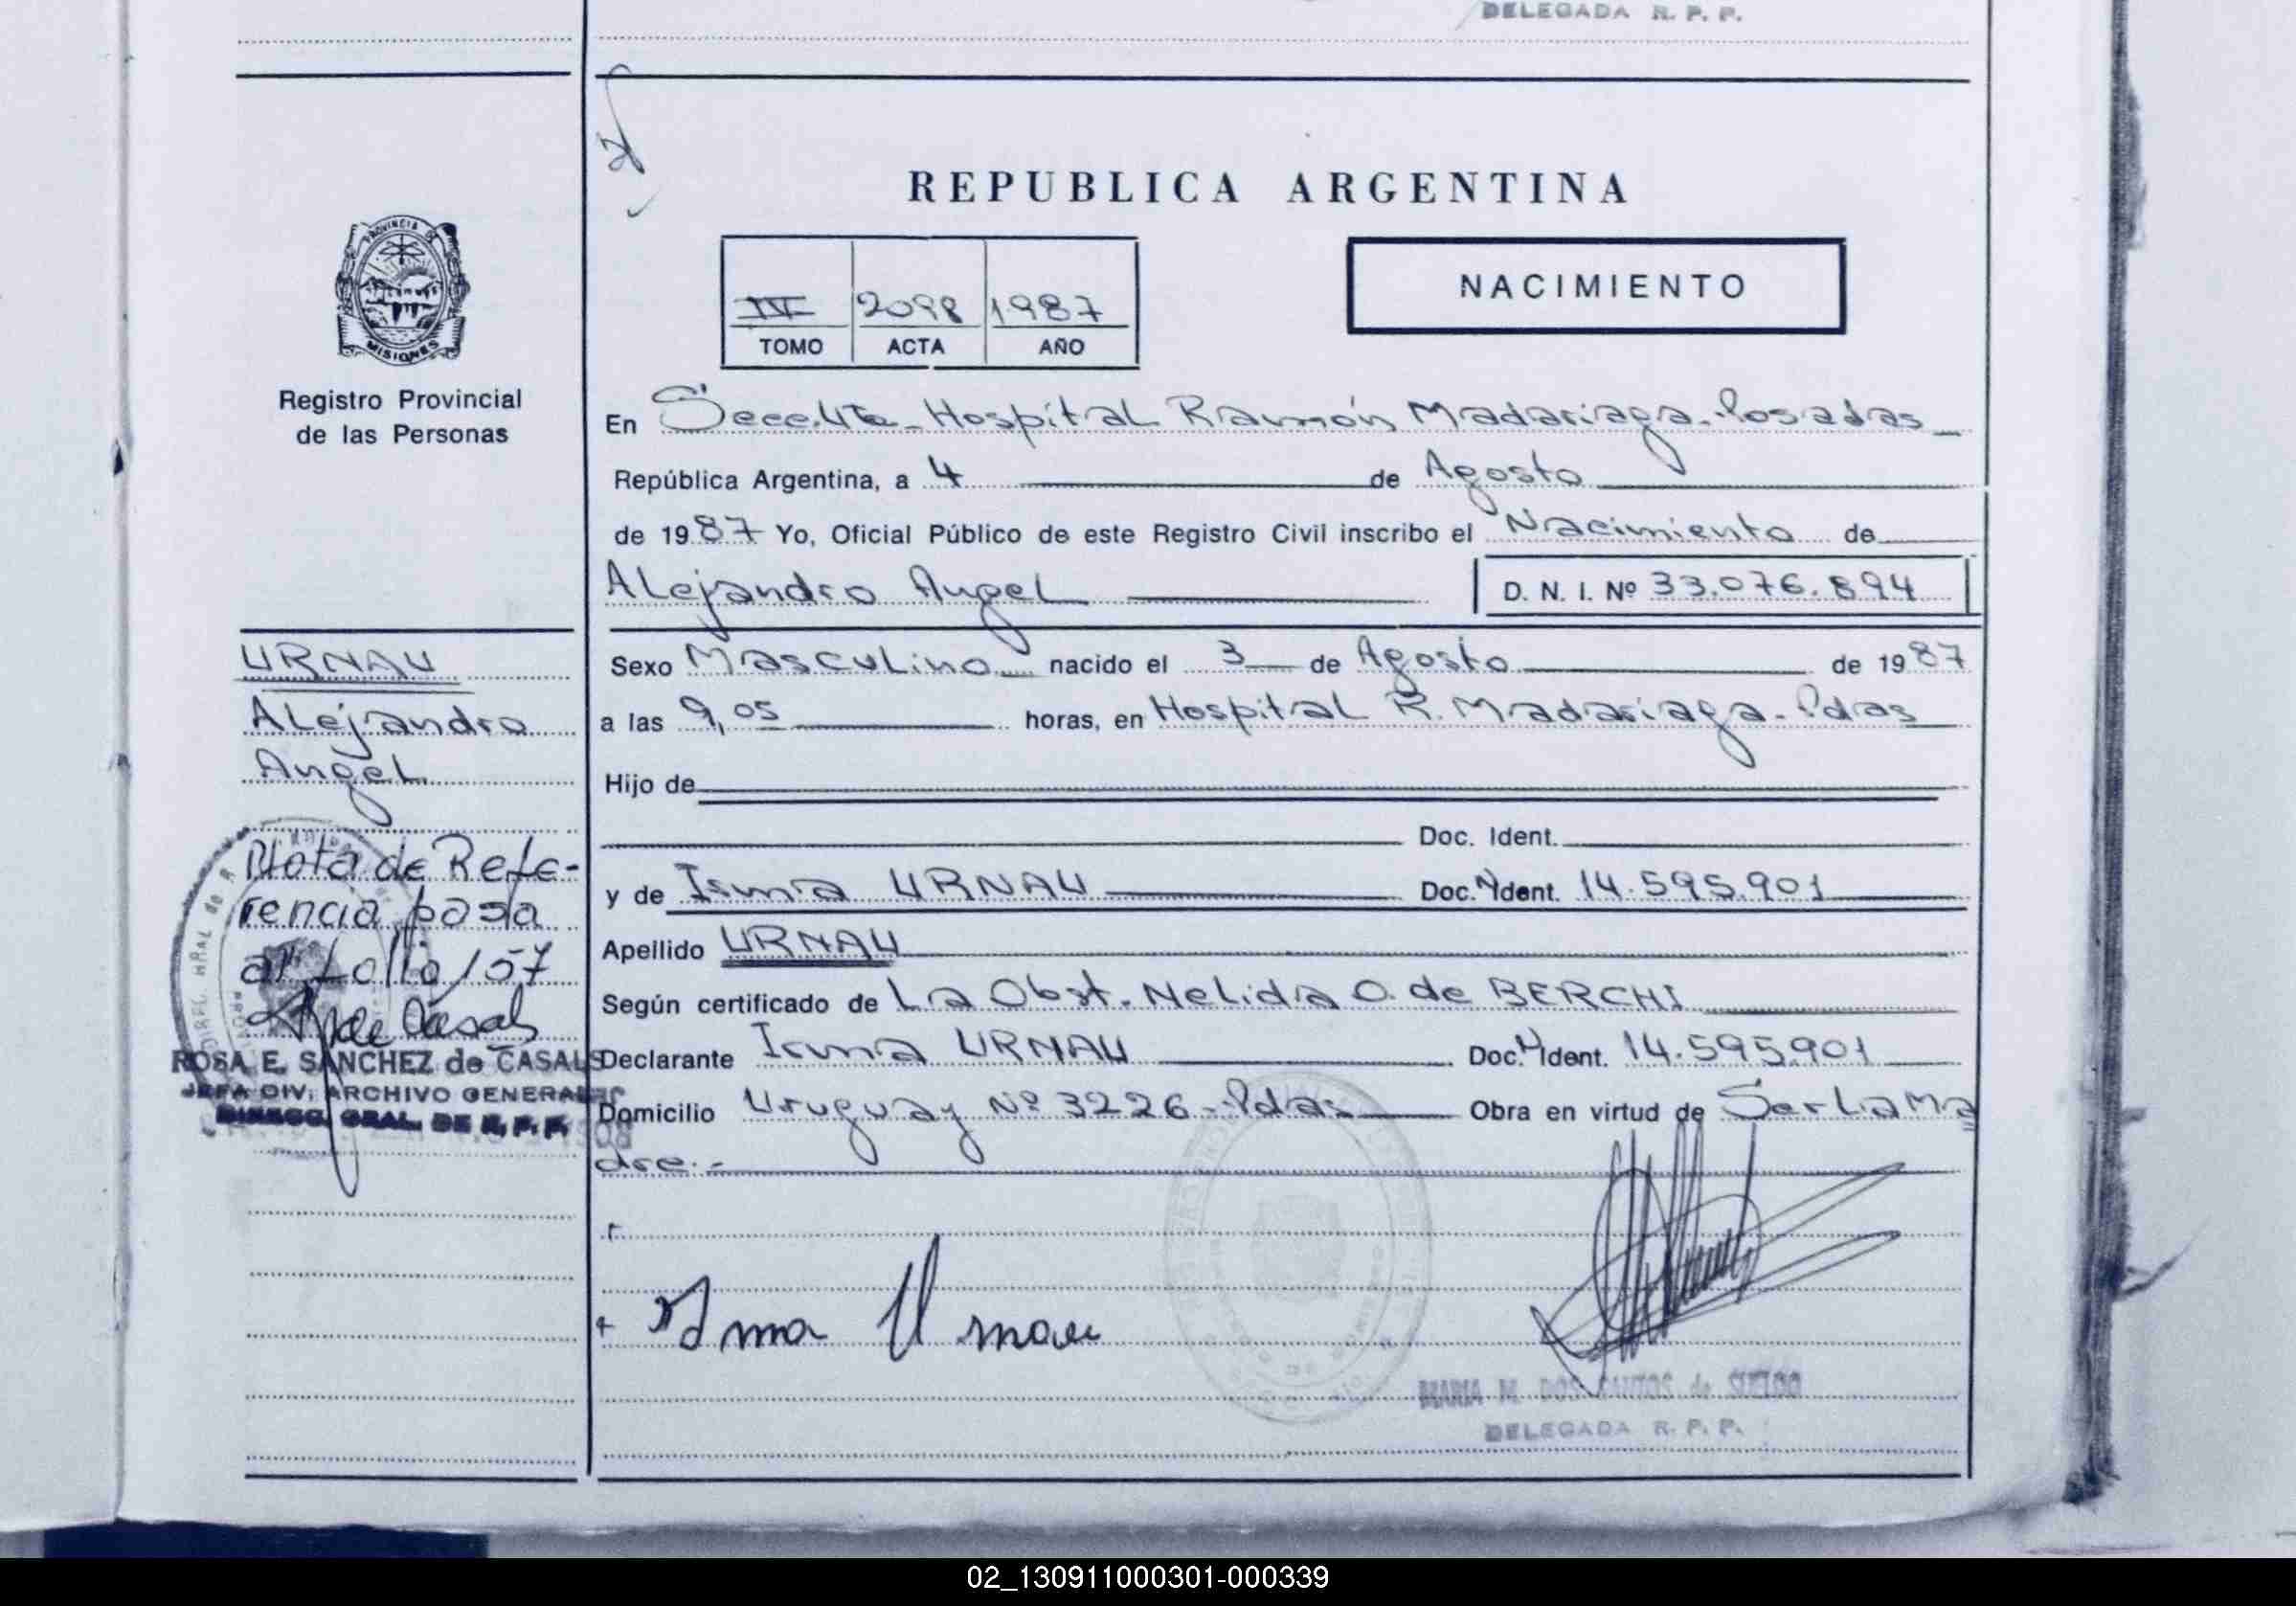 DELEGADA R. P. P.
REPUBLICA ARGENTINA
PROVINCIA DE
MISIONES
Registro Provincial
de las Personas
NACIMIENTO
IV 2098 1987
TOMO ACTA AÑO
En Secc. 4ta - Hospital Ramón Madariaga - Posadas
República Argentina, a 4 de Agosto
de 1987 Yo, Oficial Público de este Registro Civil inscribo el Nacimiento de
Alejandro Angel D. N. I. Nº 33.076.894
URNAU
Alejandro
Angel
Sexo Masculino nacido el 3 de Agosto de 1987
a las 9,05 horas, en Hospital R. Madariaga - Pdas
Hijo de
Doc. Ident.
y de Irma URNAU Doc. Ident. 14.595.901
Apellido URNAU
Según certificado de La Obst. Nelida O. de BERCHI
Declarante Irma URNAU Doc. Ident. 14.595.901
Domicilio Uruguay Nº 3226 - Pdas Obra en virtud de Ser La Ma
dre.-
Nota de Refe-
rencia pasa
al folio 157
de Casals
ROSA E. SANCHEZ de CASALS
JEFA DIV. ARCHIVO GENERAL
DIRECC. GRAL. DE R. P. P.
Irma Urnau
MARIA M. DOS SANTOS de
DELEGADA R. P. P.
02_130911000301-000339